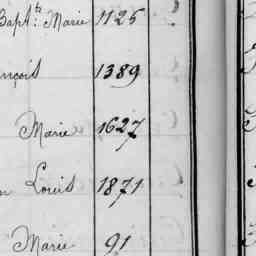 Bapt.te Marie 1125
nçois 1389
Marie 1627
n Louis 1871
Marie 91